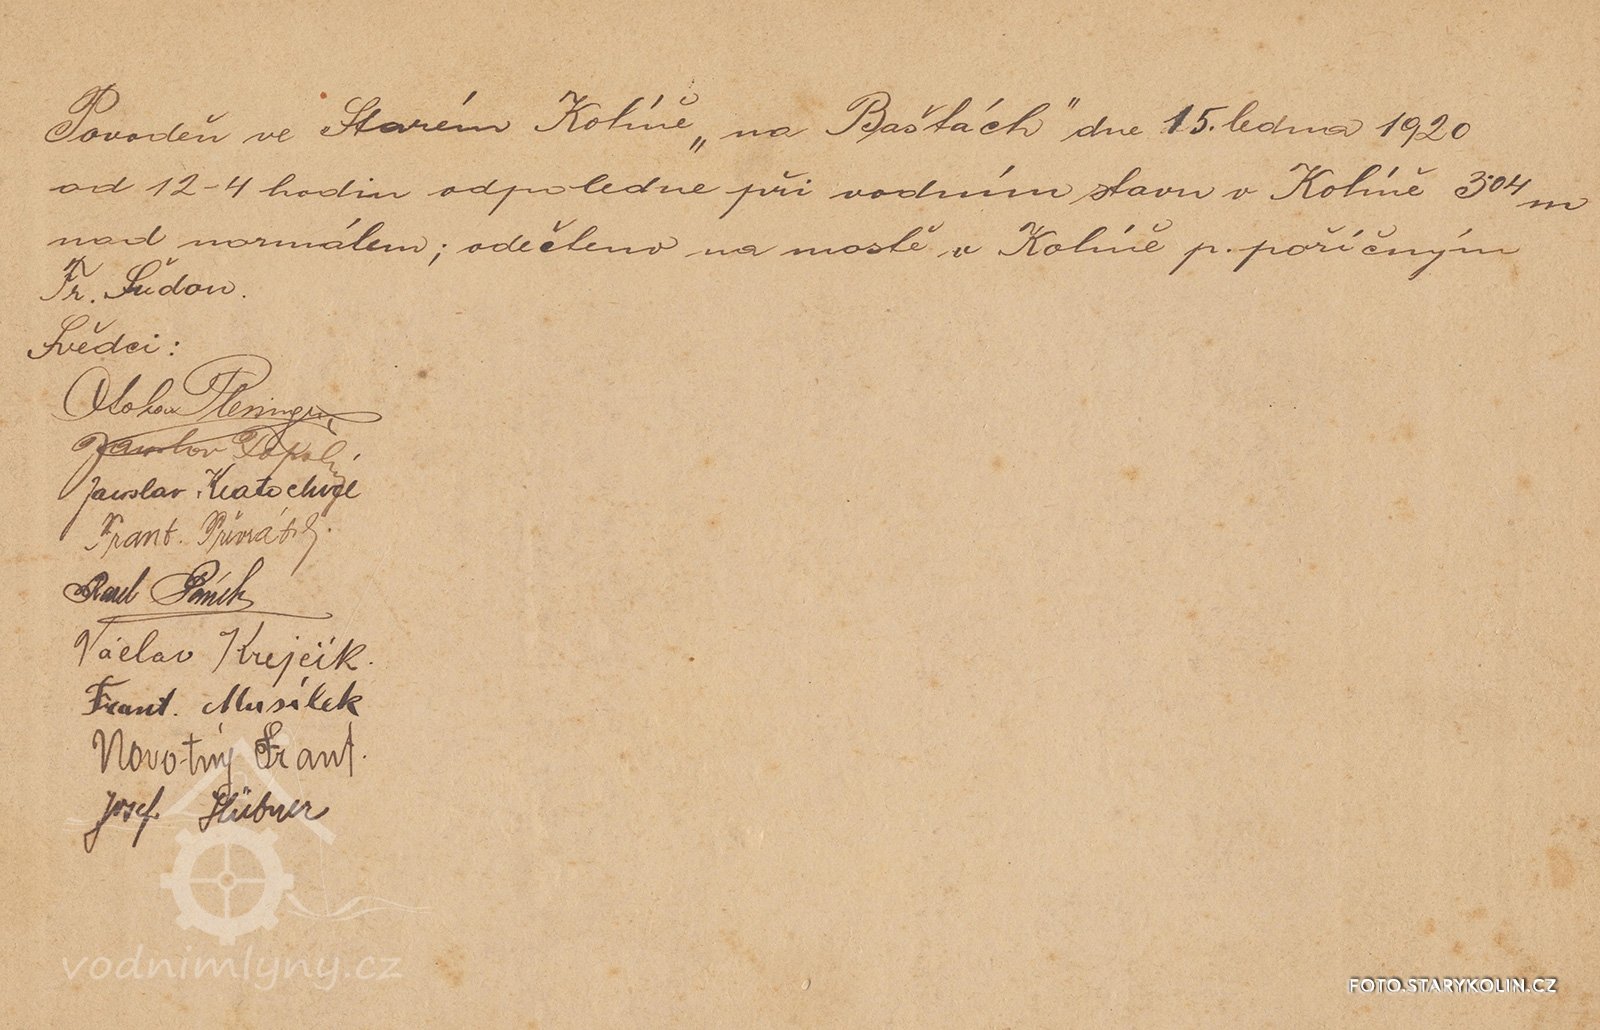 Povodeň ve Starém Kolíně „na Baštách" dne 15. ledna 1920
od 12-4 hodin odpoledne při vodním stavu v Kolíně 3·04 m
nad normálem; odečteno na mostě v Kolíně p. poříčným
Fr. Šudou.
Svědci:
Otokar
Jaroslav
Jaroslav Kratochvíl
Frant. Přivrátský.
Karel Pánek
Václav Krejčík.
Frant. Musílek
Novotný Frant.
Josef Hübner
vodnimlyny.cz
FOTO.STARYKOLIN.CZ